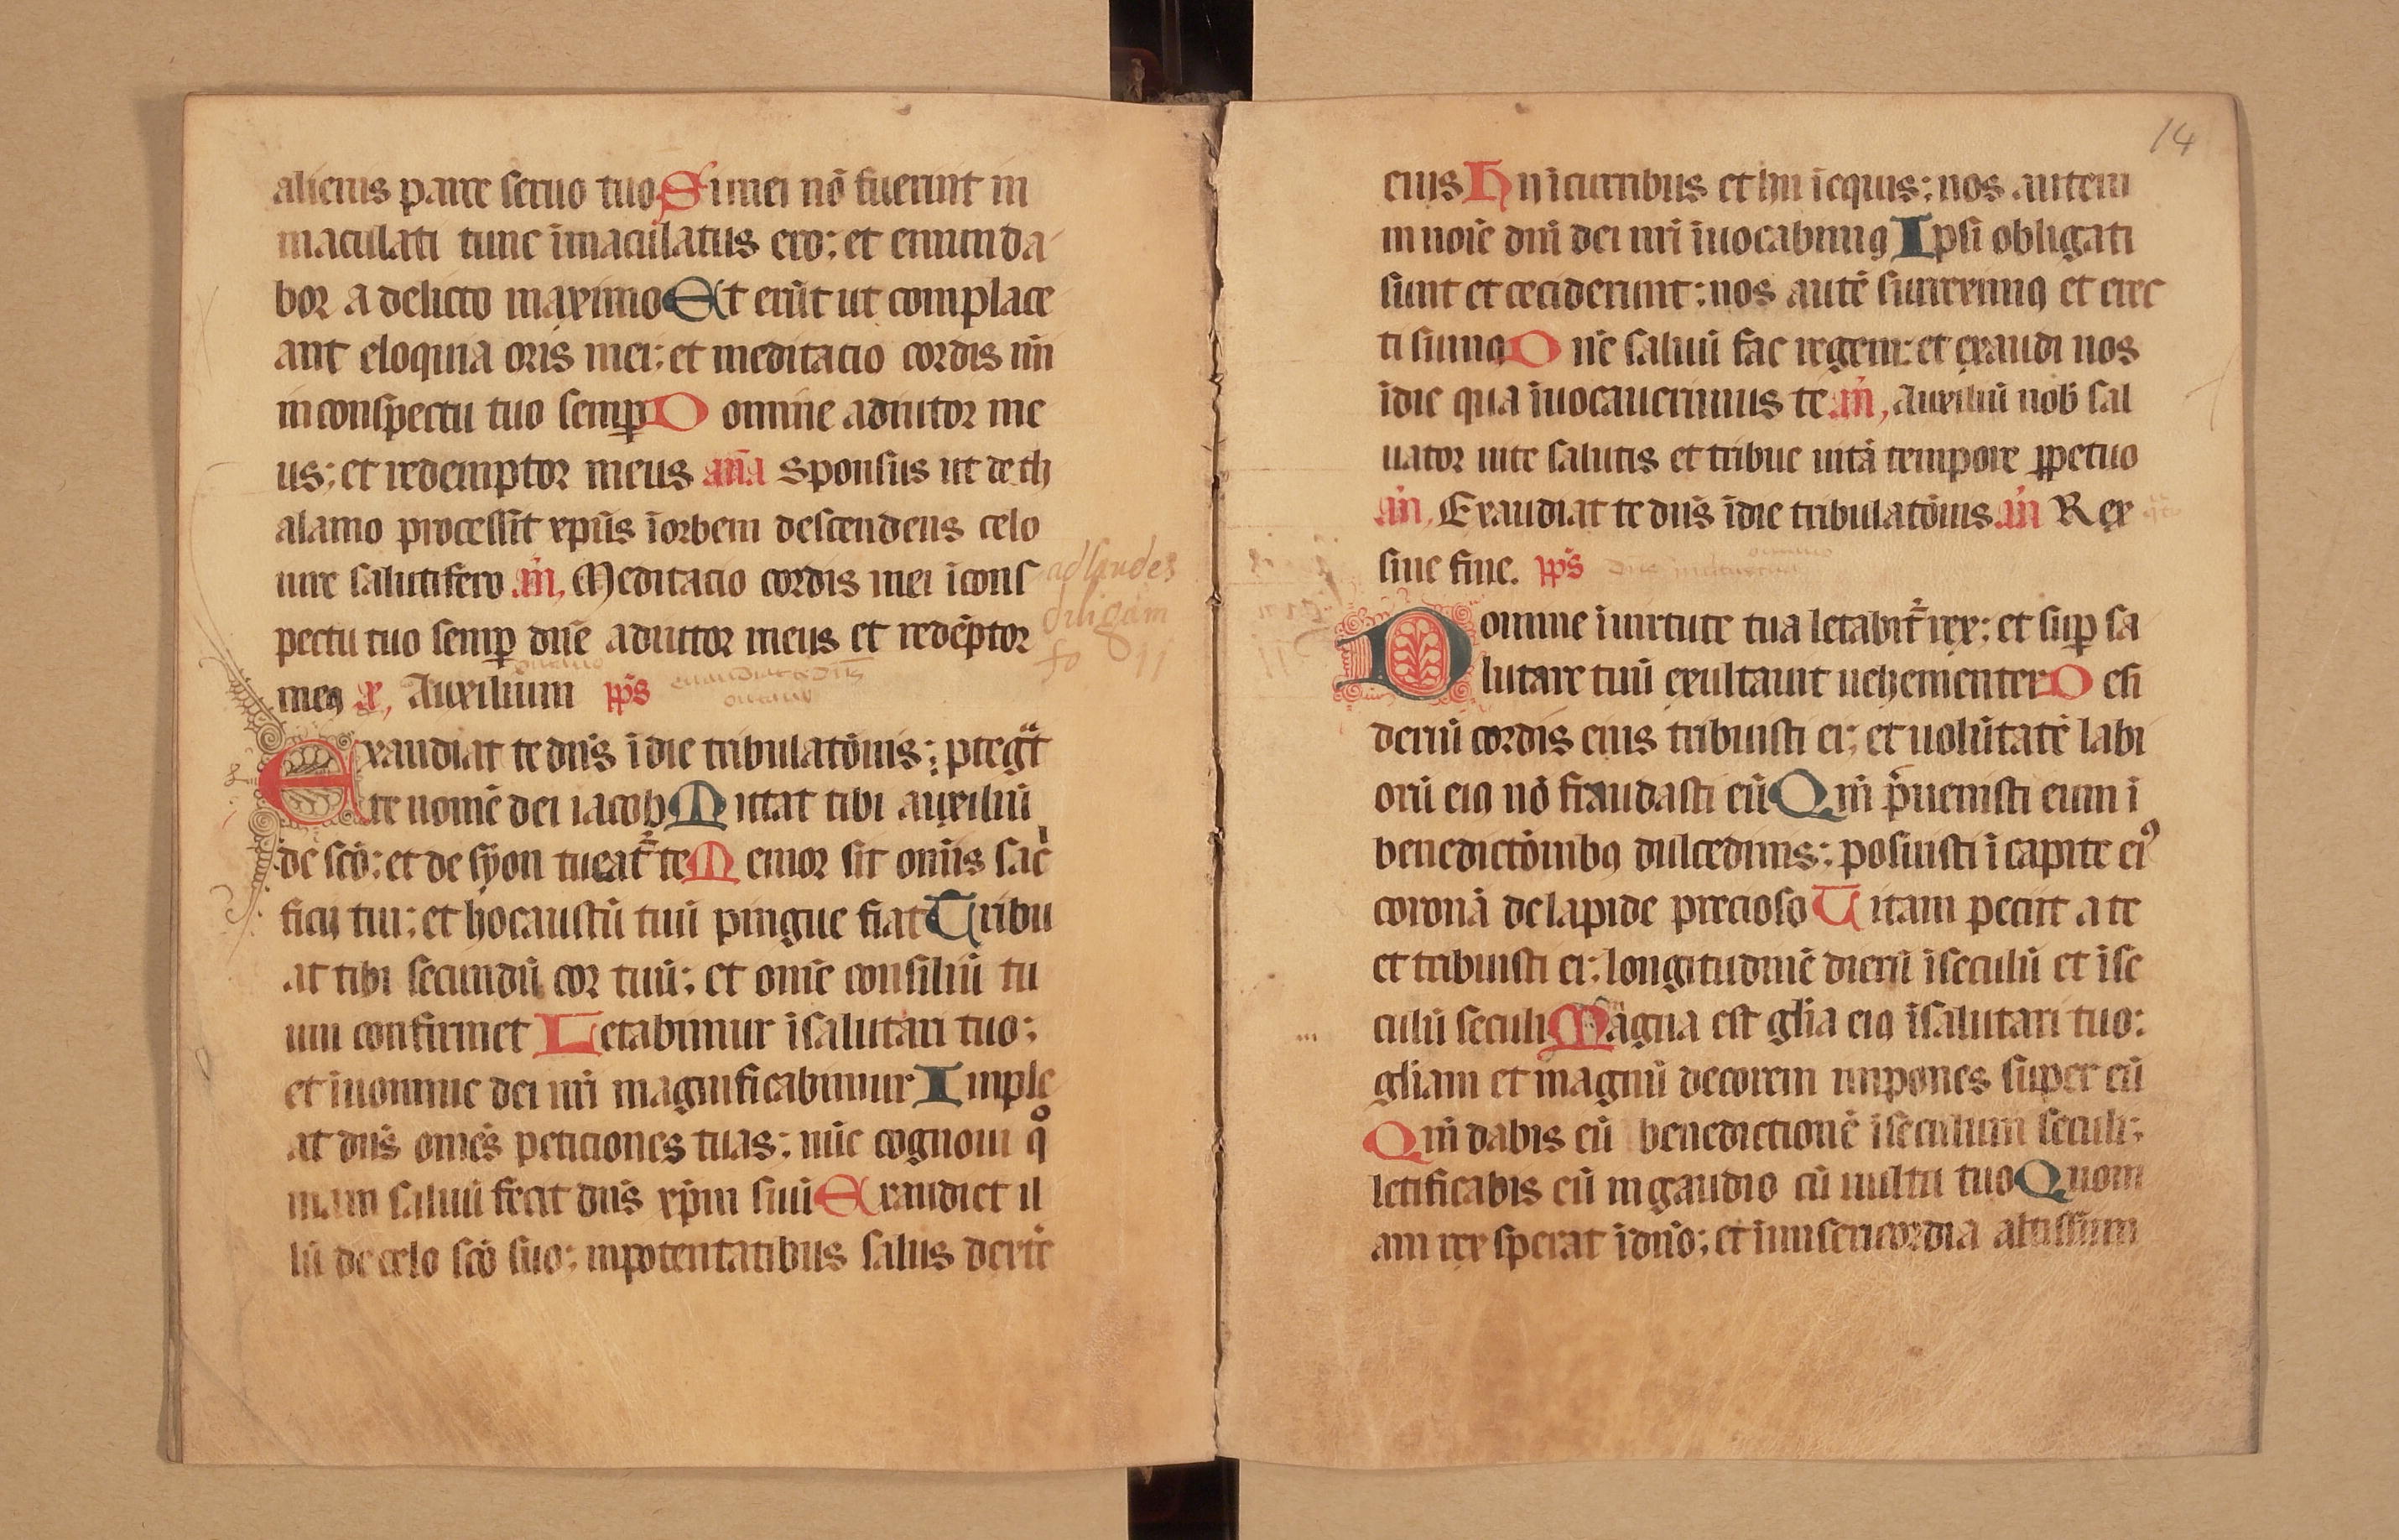 alienis parce seruo tuo Si mei nō fuerint in
maculati tunc īmaculatus ero; et emunda
bor a delicto maximo Et erūt ut complace
ant eloquia oris mei; et meditacio cordis mī
in conspectu tuo semꝑ Domine adiutor me
us; et redemptor meus aña Sponsus ut de th
alamo processit xpūs ī orbem descendens celo
iure salutifero .añ, Meditacio cordis mei ī cons
pectu tuo semꝑ dn̄e adiutor meus et redēptor
meꝯ Auxilium pp̄s
Exaudiat te dn̄s ī die tribulatōnis; ptegat
te nomē dei iacob Mittat tibi auxiliū
de scō; et de syon tueat᷑ te Memor sit omīs sac̍
ficij tui; et holocaustū tuū pingue fiat Tribu
at tibi secundū cor tuū; et om̄e consiliū tu
um confirmet Letabimur ī salutari tuo;
et ī nomine dei nr̄i magnificabimur Imple
at dn̄s om̄es peticiones tuas; nūc cognoui qͦ
niam saluū fecit dn̄s xp̄m suū Exaudiet il
lū de celo scō suo; in potentatibus salus dext̍e
ad laudes
diligam
fo
14
eius Hij ī curribus et hij ī equis; nos autem
in noīe dn̄i dei nr̄i īuocabimꝯ Ipsi obligati
sunt et ceciderunt; nos autē surreximꝯ et erec
ti sumꝯ Dn̄e saluū fac regem; et exaudi nos
ī die qua īuocauerimus te .añ, Auxiliū nob̄ sal
uator uite salutis et tribue uitā tempore ꝑpetuo
.añ, Exaudiat te dn̄s ī die tribulatōnis .añ Rex
sine fine. pp̄s
Domine ī uirtute tua letabit᷑ rex; et suꝑ sa
lutare tuū exultauit uehementer Desi
deriū cordis eius tribuisti ei; et uolūtatē labi
orū eiꝯ nō fraudasti eū Qm̄ p̄uenisti eum ī
benedictōnibꝯ dulcedinis; posuisti ī capite eiꝰ
coronā de lapide precioso Uitam peciit a te
et tribuisti ei; longitudinē dierū ī seculū et ī se
culū seculi Magna est gl̄ia eiꝯ ī salutari tuo;
gl̄iam et magnū decorem impones super eū
Qm̄ dabis eū benedictionē ī seculum seculi;
letificabis eū in gaudio cū uultu tuo Quoni
am rex sperat ī dn̄o; et ī misericordia altissimi